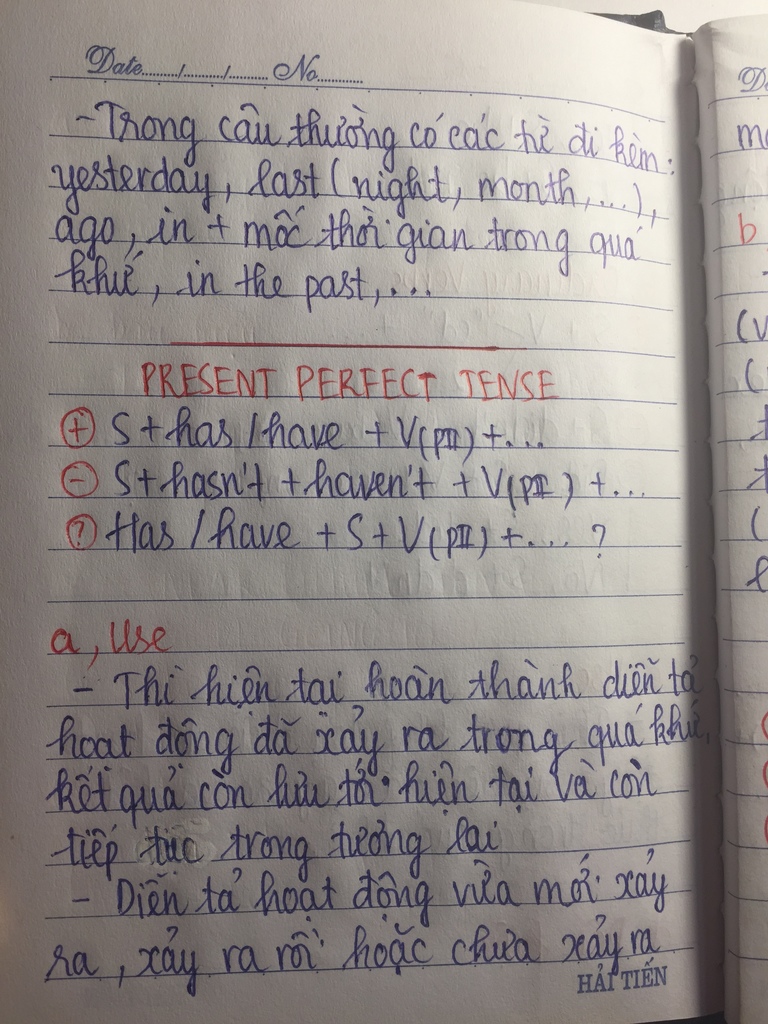 Date........../........../.......... No............
- Trong câu thường có các từ đi kèm:
yesterday, last (night, month,...),
ago, in + mốc thời gian trong quá
khứ, in the past,...
PRESENT PERFECT TENSE
(+) S + has / have + V(pII) +...
(-) S + hasn't + haven't + V(pII) + ...
(?) Has / have + S + V(pII) + .... ?
a, Use
- Thì hiện tại hoàn thành diễn tả
hoạt động đã xảy ra trong quá khứ,
kết quả còn lưu tới hiện tại và còn
tiếp tục trong tương lai
- Diễn tả hoạt động vừa mới xảy
ra, xảy ra rồi hoặc chưa xảy ra
HẢI TIẾN
b